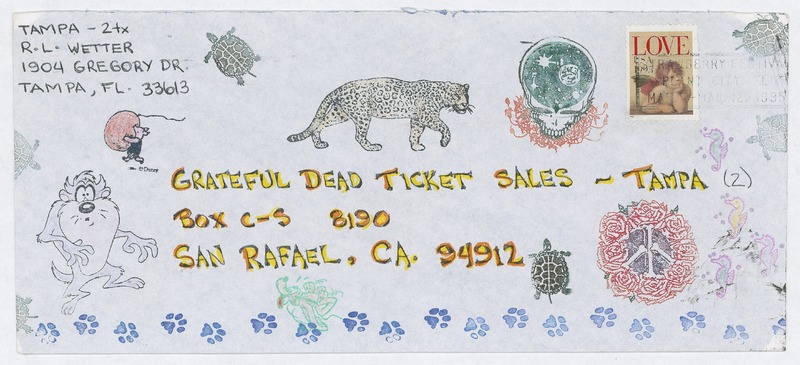 TAMPA - 2tx
R.L. WETTER
1904 GREGORY DR.
TAMPA, FL. 33613
LOVE
USA
1995
©Disney
GRATEFUL DEAD TICKET SALES ~ TAMPA (2)
BOX C-S 8190
SAN RAFAEL, CA. 94912